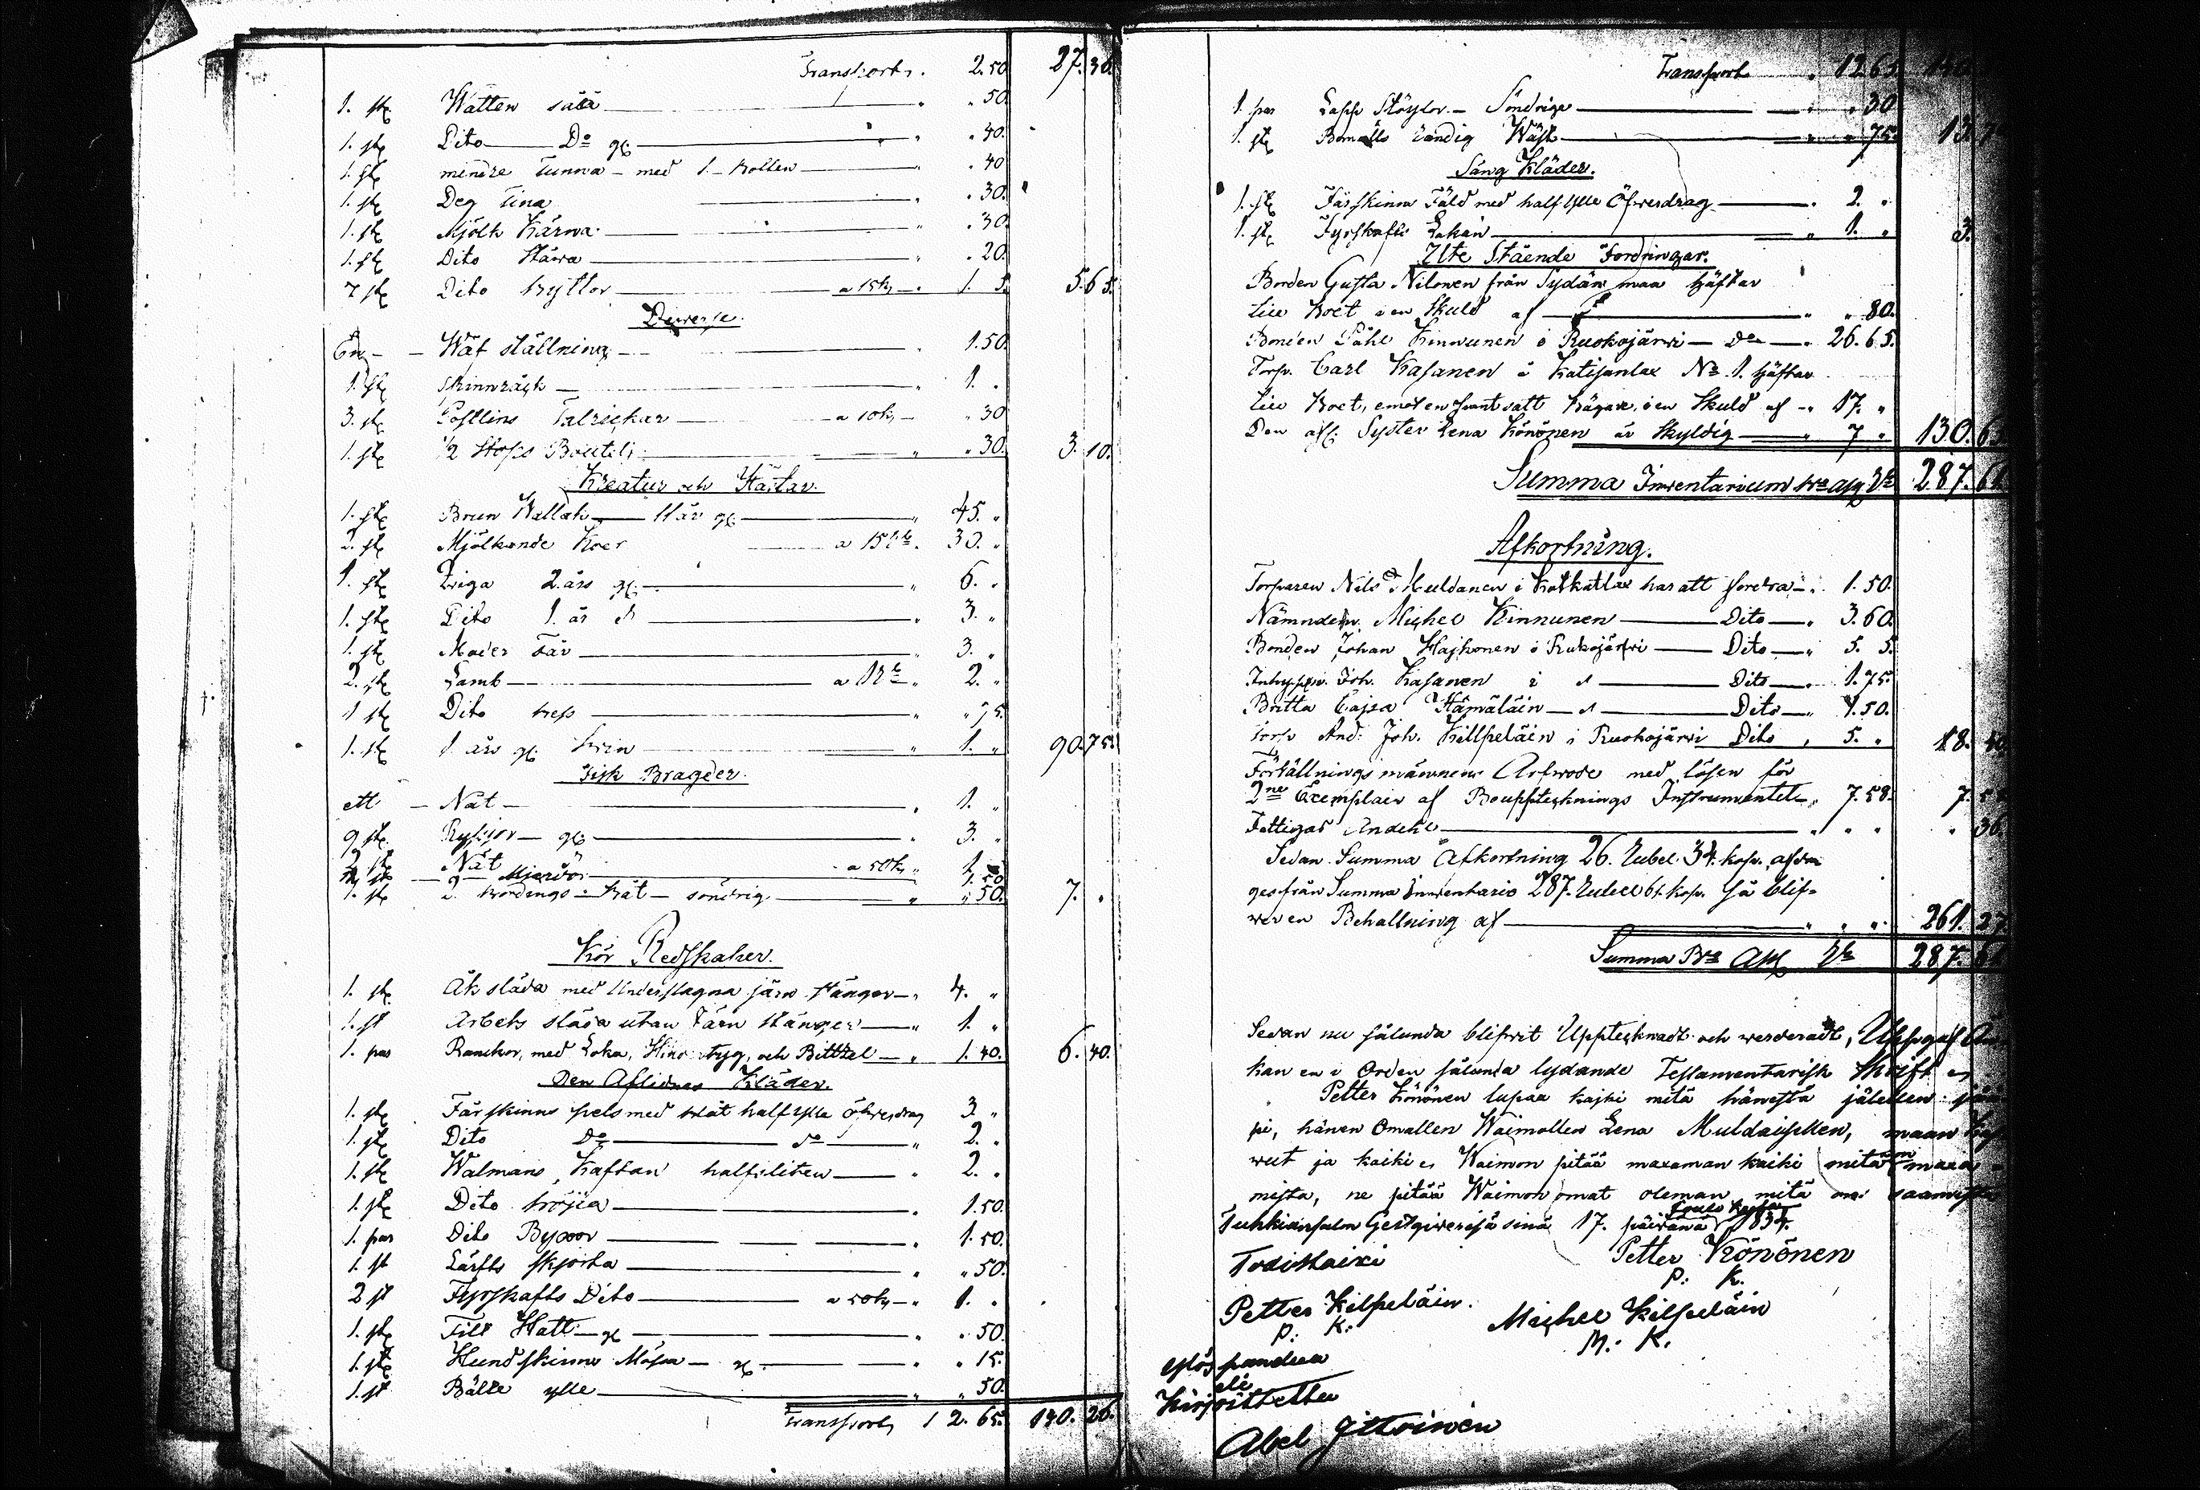 Transport. 2. 50 27. 36.
1. st. Watten såå " " 50.
1. st. Dito Do gl. " " 40.
1. st. mindre Tunna – med 1. – botten " " 40
1. st. Deg tina " " 30.
1. st. Mjölk Kärna " " 30.
1. st. Dito Stäwa " " 20.
7 st. Dito byttor a 15 k. " 1. 5. 5. 65.
Diverse.
En – Wäf ställning – " 1. 50.
1. st. Skinnräck – " 1. "
3. st. Postlins Talrickar a 10 k. – " 30
1. st. 1/2 Stops Boutelj " " 30. 3. 10.
Kreatur och Hästar.
1. st. Brun Wallak gl. " 45. "
2. st. Mjölkande Koer a 15 " 30. "
1. st. Qviga 2. års gl. " 6. "
1. st. Dito 1. år " 3. "
1. st. Moder Får " 3. "
2. st. Lamb a 1 " 2. "
1 st. Dito " " 75.
1. st. 1. års gl. Swin " 1. " 90. 75.
Fisk Bragder.
ett – Nät – " 1. "
9 st. Rysjor – gl. " 3. "
2 st. Nät a 50 k. " 1. "
2 Mjerdor 1. 50
1. st. Nät – söndrig " " 50. 7. "
Kör Redskaper.
1. st. Åk släda med Underslagna järn stänger – " 4. "
1. st Arbets släda utan Järn stänger – " 1. "
1. par Ranckor, med Loka, tyg, och Bittzel – " 1. 40. 6. 40.
Den Aflidnes Kläder.
1. st. Fårskinns pels med blåt halfylle öfwerdrag 3 "
1. st. Dito Do do " 2. "
1. st. Walmans Kaftan halfsliten " 2. "
1. st. Dito tröjia " 1. 50.
1. par Dito Byxor " 1. 50.
1. st Lärfts skjorta " " 50.
2 st Fyrskafts Dito a 50 k. – " 1. "
1. st. Filt Hatt – gl – " " 50.
1. st. Hundskinns Mössa – gl. " " 15.
1. st Bälte ylle " " 50.
Transport, 12. 65. 140. 26.
Transport " 12. 65.
1. par Lapp Stöylor – Söndriga " " 30
1. st. Bomulls randig Wäst " " 75.
Säng Kläder.
1. st. Fårskinns Fäld med halfylle Öfwerdrag " 2. "
1. st. Fyrskafts Lakan " 1. " 3.
Ute Stående Fordringar.
Bonden Gusta Nilonen från Sydän maa häftar
till boet i en Skuld af " " 80.
Bonden Påhl Kinnunen i Ruokojärwi – Do " 26. 65.
Torp. Carl Kasanen å No. 1. häftar
till boet, emot en pant satt i en Skuld af – " 17. "
Den afl. Syster Lena Könönen är Skyldig " 7 " 130. 6
Summa Inventarium 287. 61
Afkortning.
Torparen Nils Muldanen i har att fordra – " 1. 50.
Nämndem. Michel Kinnunen Dito – " 3. 60.
Bonden Johan Hajkonen i Rukojärwi Dito – " 5. 5.
Joh. Kasanen i Dito – " 1. 75.
Britta Cajsa Hämäläin – Dito – " 1. 50.
Torp And: Joh. Killpeläin i Ruokojärwi Dito " 5. " 18. 40
Förrättnings männens Arfwode med lösen för
2ne Exemplair af Bouppteknings Instrumentet – " 7. 58. 7. 58
Fattigas Andehl " " " 36
Sedan Summa Afkortning 26. Rubel 34. kop. afdra
ges från Summa Inwentario 287. Rubel 61. kop. så blif-
wer en Behallning af " " " 261. 27
Summa 287. 61
Sedan nu sålunda blifwit Uppteknadt och werderadt, Uppgaf
kan en i Orden sålunda lydande Testamentarisk Skrift
Petter Könönen lupaa kajki mitä hänestä jälellen jää
pi, hänen Omallen Waimollen Lena Muldaisellen, maan
weet ja kaiki es Waimon pitää maxaman kaiki mitä on maxa –
mista, ne pitää Waimon omat oleman mitä on saamista
Suhkiansalm Gestgiwerisä sinä 17. päiwänä Joulu Kuusa 1834.
Petter Könönen
P. K.
Todistaixi
Petter Kilpeläin.
P. K.
Michel Kilpeläin
M. K.
Ylös pandua
eli
Kirjoittettu
Abel Jttoinen